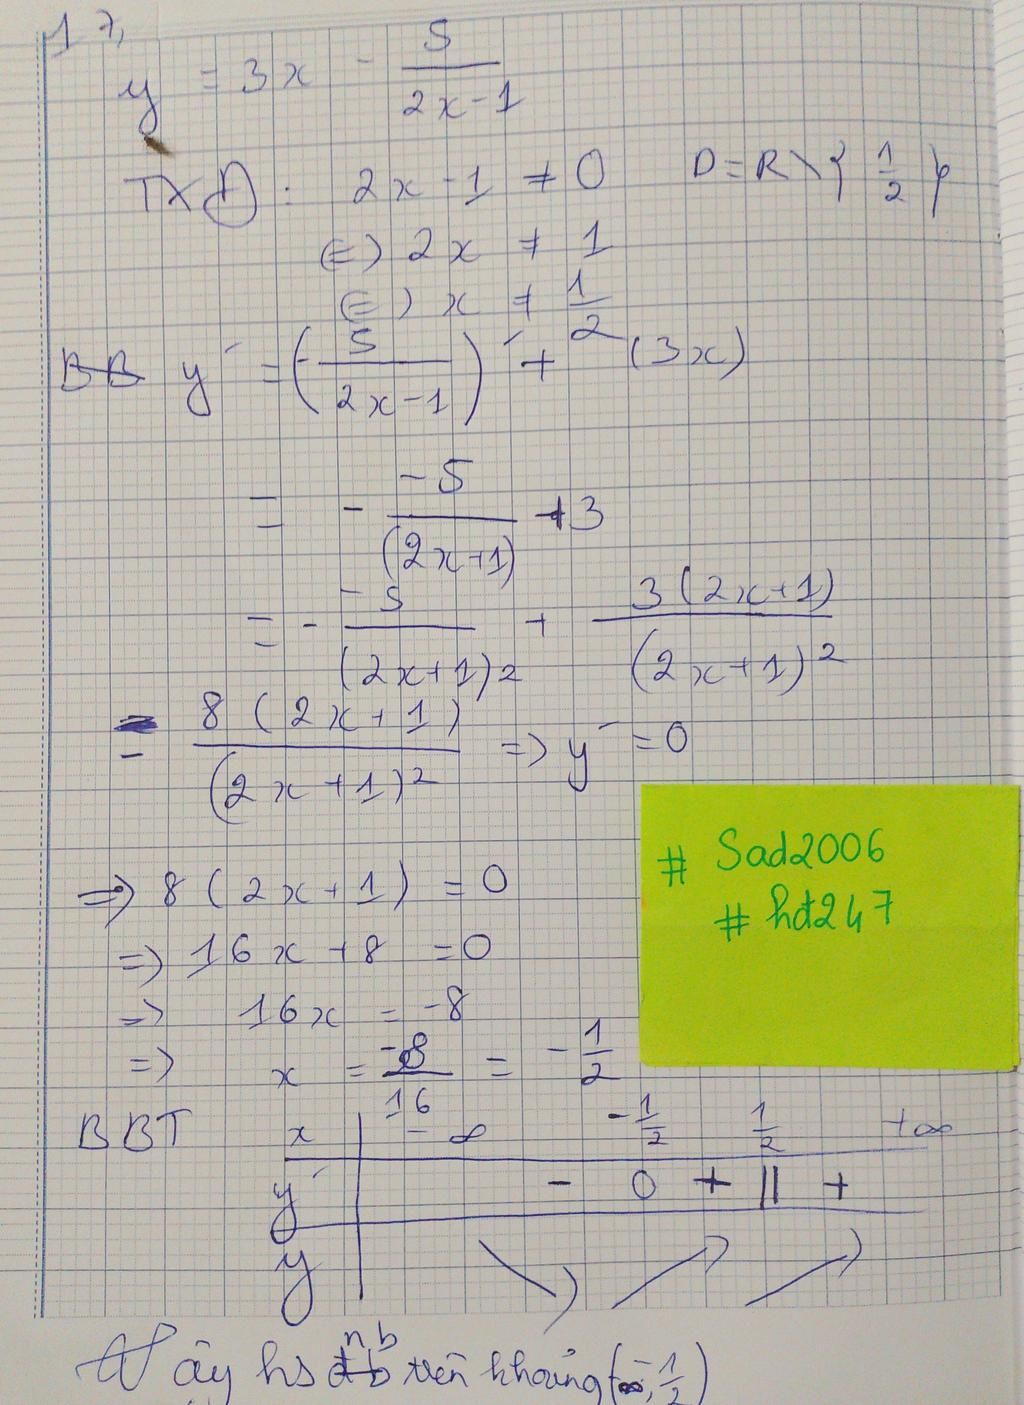 17,
y = 3x - 5/(2x-1)
TXĐ: 2x-1 ≠ 0 D=R\{1/2}
(=) 2x ≠ 1
(=) x ≠ 1/2
y' = (-5/(2x-1))' + (3x)
= - -5/(2x+1) +3
= - -5/(2x+1)2 + 3(2x+1)/(2x+1)²
= 8(2x+1)/(2x+1)² => y' = 0
=> 8(2x+1) = 0
=> 16x +8 = 0
=> 16x = -8
=> x = -8/16 = -1/2
# Sad2006
# hđ247
BBT x -∞ -1/2 1/2 +∞
y' - 0 + || +
y
Vậy hs nb trên khoảng (-∞; -1/2)